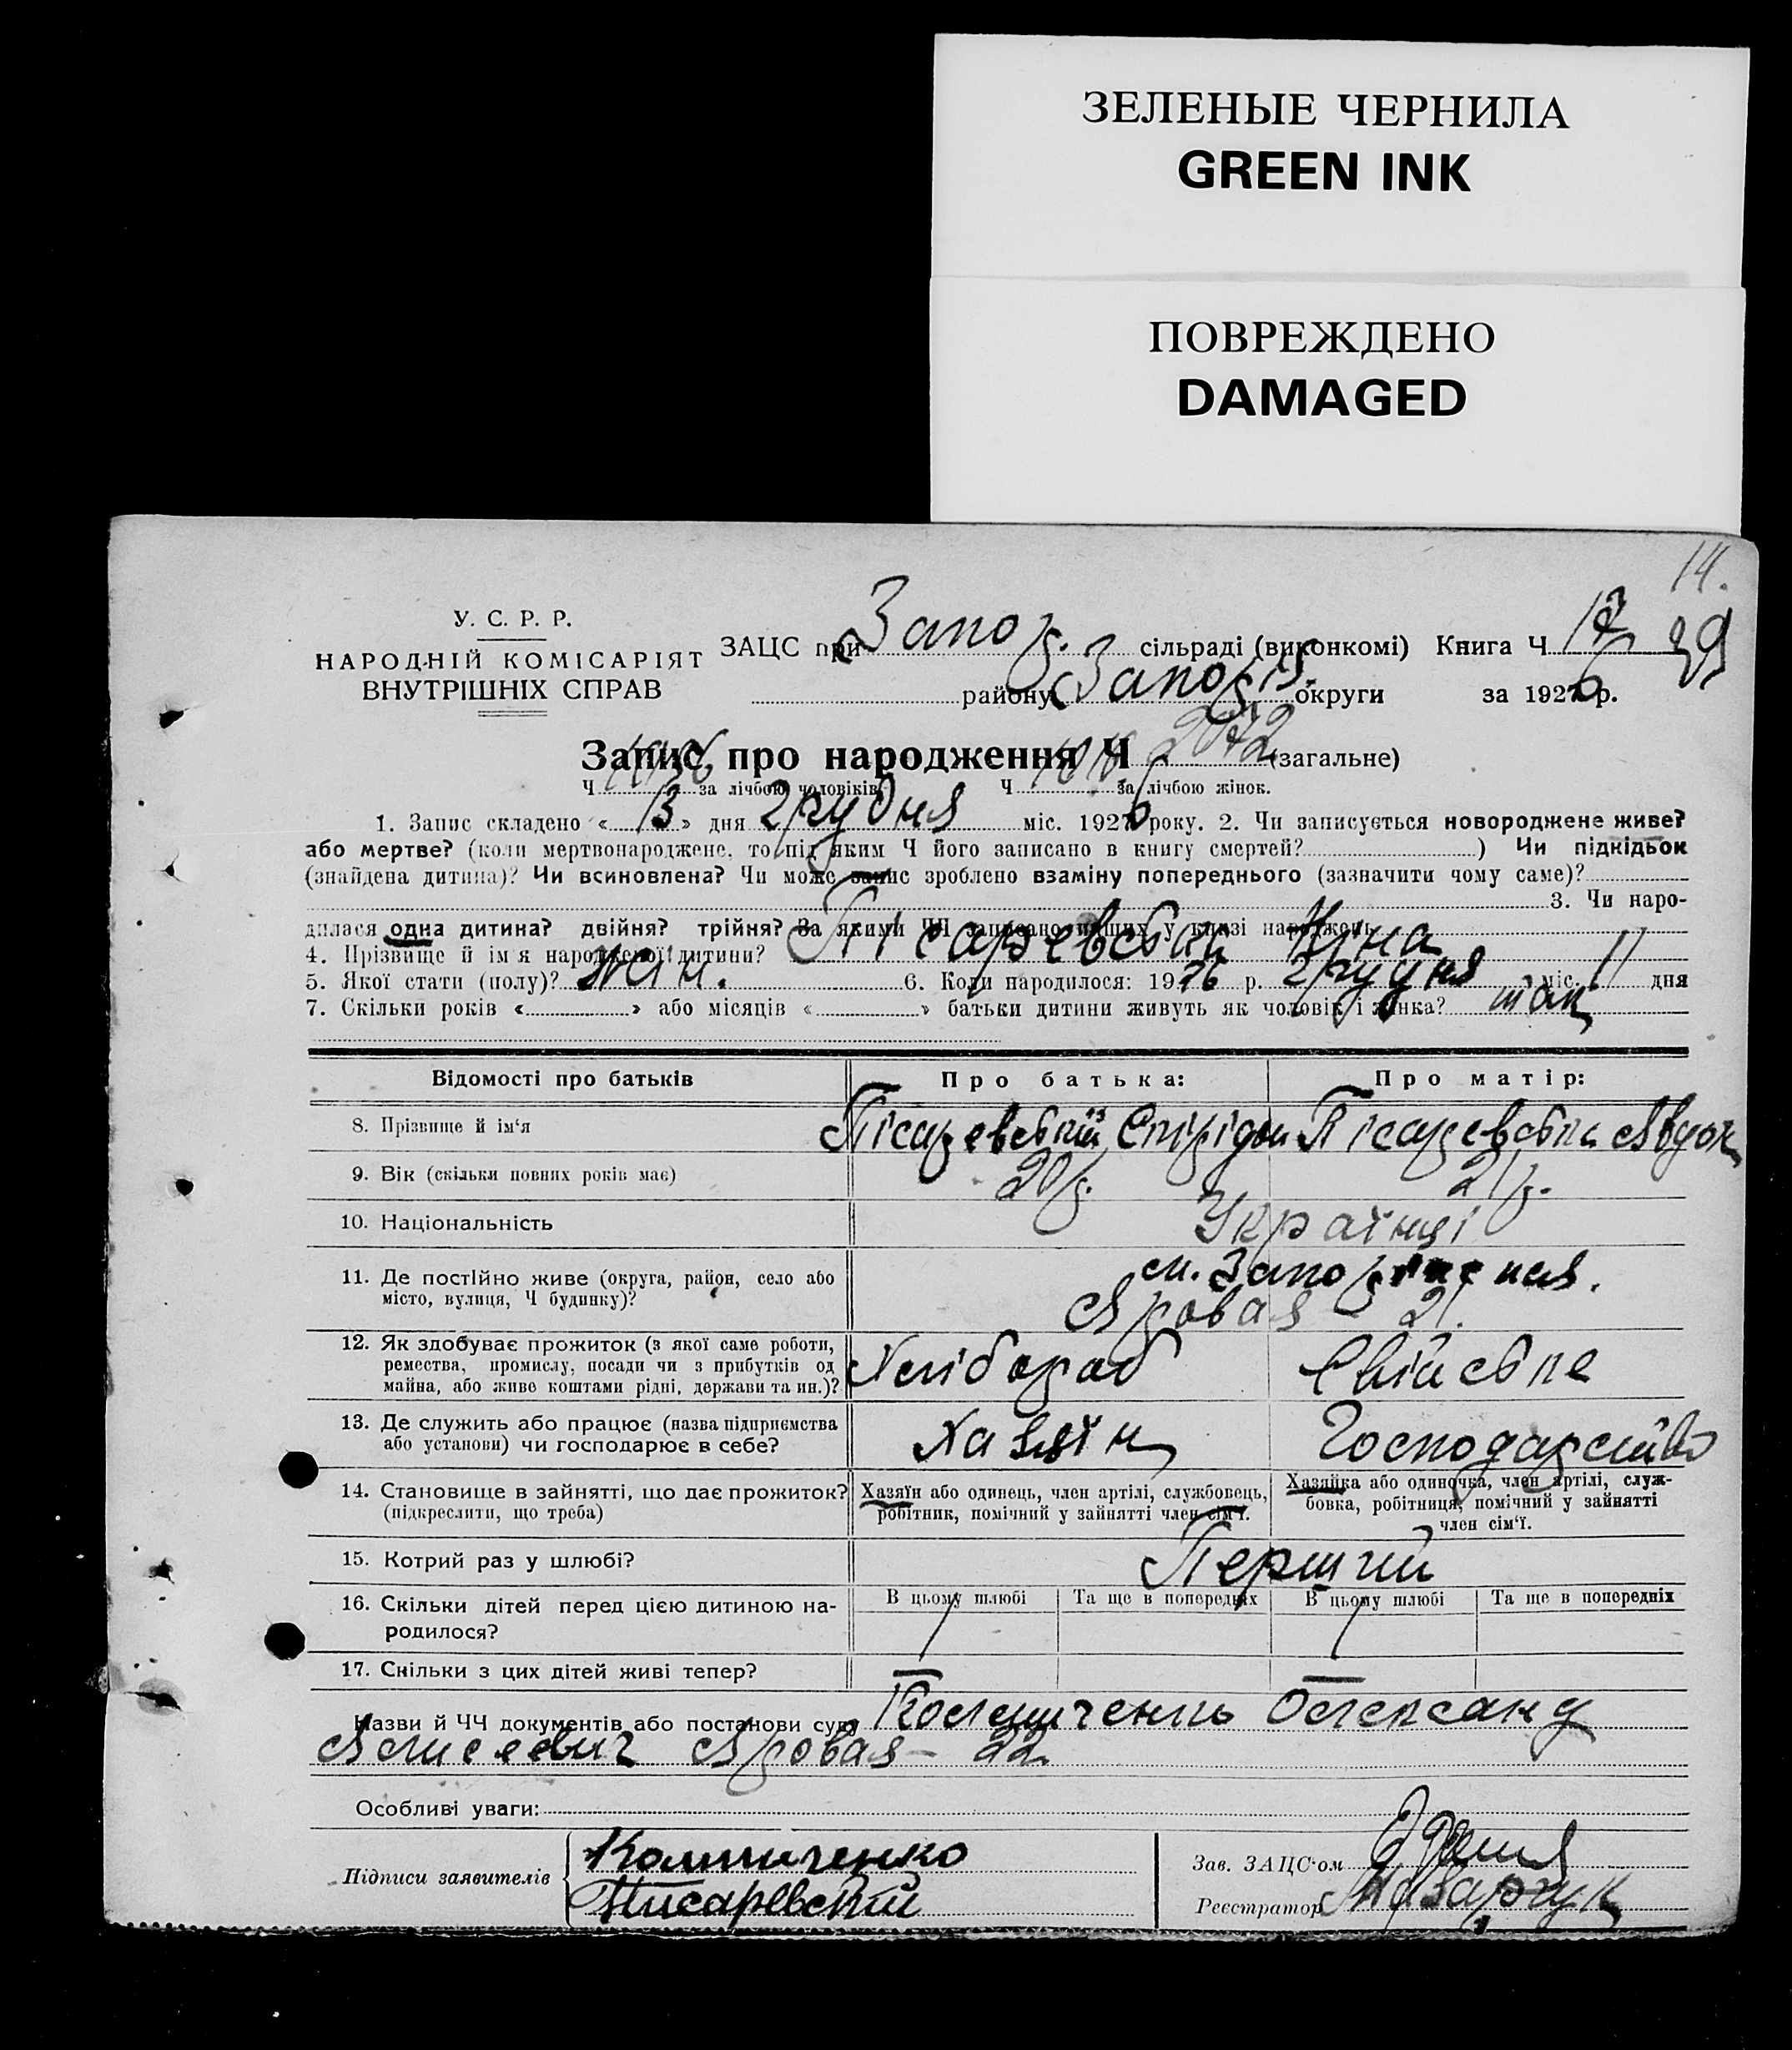 ЗЕЛЕНЫЕ ЧЕРНИЛА
GREEN INK
ПОВРЕЖДЕНО
DAMAGED
14.
У. С. Р. Р.
НАРОДНІЙ КОМІСАРІЯТ
ВНУТРІШНІХ СПРАВ
ЗАЦС при Запор. сільраді (виконкомі) Книга Ч 12 39
району Запоріз. округи за 1926 р.
Запис про народження Ч 2072 (загальне)
Ч за лічбою чоловіків Ч за лічбою жінок.
1. Запис складено «13» дня Грудня міс. 1926 року. 2. Чи записується новороджене живе?
або мертве? (коли мертвонароджене, то під яким Ч його записано в книгу смертей? ) Чи підкідьок
(знайдена дитина)? Чи всиновлена? Чи може запис зроблено взаміну попереднього (зазначити чому саме)?
3. Чи наро-
дилася одна дитина? двійня? трійня? За якими ЧЧ записано інших у книзі народжень
4. Прізвище й ім'я народженої дитини? Пісаревська Ніна
5. Якої стати (полу)? жін. 6. Коли народилося: 1926 р. Грудня міс. 11 дня
7. Скільки років « » або місяців « » батьки дитини живуть як чоловік і жінка? так
Відомості про батьків Про батька: Про матір:
8. Прізвище й ім'я Пісаревський Спірідон Пісаревська Явдох
9. Вік (скільки повних років має) 20 р. 21 р.
10. Національність Українці
11. Де постійно живе (округа, район, село або
місто, вулиця, Ч будинку)? м. Запоріжжя.
Яровая - 21.
12. Як здобуває прожиток (з якої саме роботи,
ремества, промислу, посади чи з прибутків од
майна, або живе коштами рідні, держави та ин.)? Хлібороб Свійське
13. Де служить або працює (назва підприємства
або установи) чи господарює в себе? Хазяїн Господарство
14. Становище в зайнятті, що дає прожиток?
(підкреслити, що треба)
Хазяїн або одинець, член артілі, службовець,
робітник, помічний у зайнятті член сім'ї.
Хазяйка або одиночка, член артілі, служ-
бовка, робітниця, помічний у зайнятті
член сім'ї.
15. Котрий раз у шлюбі? Перший
16. Скільки дітей перед цією дитиною на-
родилося?
В цьому шлюбі Та ще в попередніх В цьому шлюбі Та ще в попередніх
1 1
17. Скільки з цих дітей живі тепер? — —
Назви й ЧЧ документів або постанови суду Олександ
Алисеевич Яровая - 22
Особливі уваги:
Підписи заявителів
Писаревский
Зав. ЗАЦС'ом
Реєстратор